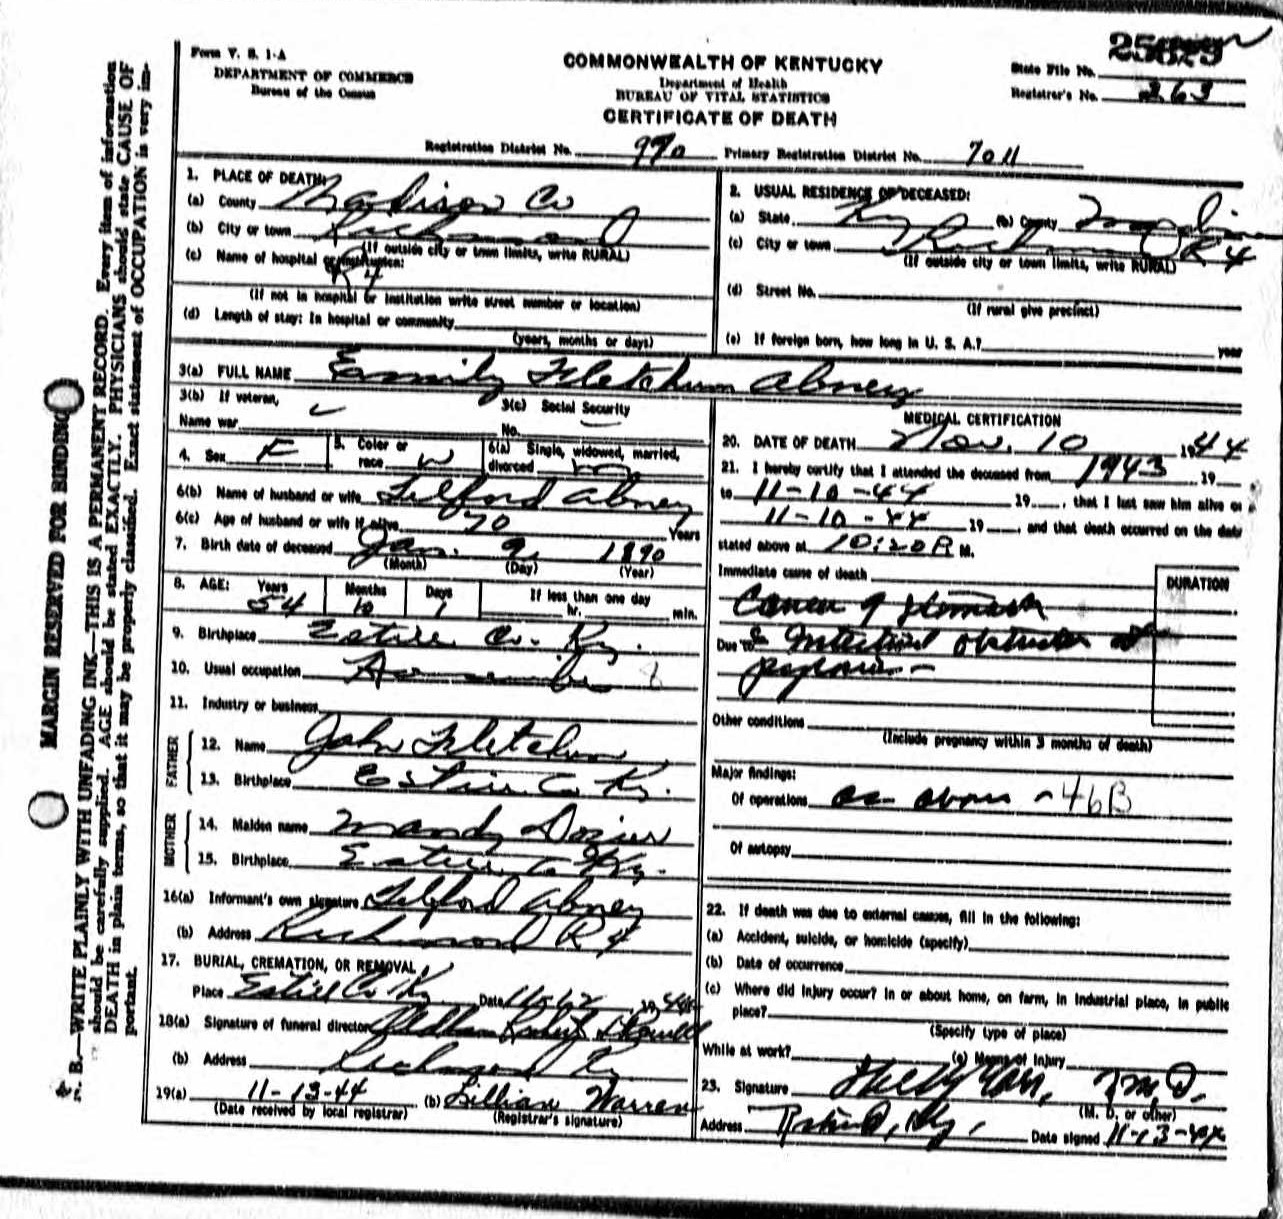 Form V. S. 1-A
DEPARTMENT OF COMMERCE
Bureau of the Census
COMMONWEALTH OF KENTUCKY
Department of Health
BUREAU OF VITAL STATISTICS
CERTIFICATE OF DEATH
State File No.
Registrar's No. 263
Registration District No. 990 Primary Registration District No. 7011
MARGIN RESERVED FOR BINDING
N. B.—WRITE PLAINLY WITH UNFADING INK—THIS IS A PERMANENT RECORD. Every item of information
should be carefully supplied. AGE should be stated EXACTLY. PHYSICIANS should state CAUSE OF
DEATH in plain terms, so that it may be properly classified. Exact statement of OCCUPATION is very im-
portant.
1. PLACE OF DEATH:
(a) County Madison Co
(b) City or town Richmond
(If outside city or town limits, write RURAL)
(c) Name of hospital or institution:
R 4
(If not in hospital or institution write street number or location)
(d) Length of stay: In hospital or community
(years, months or days)
2. USUAL RESIDENCE OF DECEASED:
(a) State Ky (b) County Madison
(c) City or town Richmond R 4
(If outside city or town limits, write RURAL)
(d) Street No.
(If rural give precinct)
(e) If foreign born, how long in U. S. A.? year
3(a) FULL NAME Emily Fletcher Abney
3(b) If veteran,
Name war
3(c) Social Security
No.
4. Sex F
5. Color or
race W
6(a) Single, widowed, married,
divorced m
6(b) Name of husband or wife Telford Abney
6(c) Age of husband or wife if alive 70 Years
7. Birth date of deceased Jan. 9, 1890
(Month) (Day) (Year)
8. AGE: Years Months Days If less than one day
54 10 1 hr. min.
9. Birthplace Estill Co. Ky.
10. Usual occupation Housewife
11. Industry or business
FATHER
12. Name John Fletcher
13. Birthplace Estill Co Ky.
MOTHER
14. Maiden name Mandy Dozier
15. Birthplace Estill Co Ky.
16(a) Informant's own signature Telford Abney
(b) Address Richmond R 4
17. BURIAL, CREMATION, OR REMOVAL
Place Estill Co Ky Date 19 44
18(a) Signature of funeral director Oldham Powell
(b) Address Richmond Ky
19(a) 11-13-44 (b) Lillian Warren
(Date received by local registrar) (Registrar's signature)
MEDICAL CERTIFICATION
20. DATE OF DEATH Nov. 10 1944
21. I hereby certify that I attended the deceased from 1943 19
to 11-10-44 19, that I last saw him alive on
11-10-44 19, and that death occurred on the date
stated above at 10:20 P M.
Immediate cause of death DURATION
Cancer of stomach
Due to & Intestinal obstruction at
pylorus -
Other conditions
(Include pregnancy within 3 months of death)
Major findings:
Of operations as above - 46B
Of autopsy
22. If death was due to external causes, fill in the following:
(a) Accident, suicide, or homicide (specify)
(b) Date of occurrence
(c) Where did injury occur? In or about home, on farm, in industrial place, in public
place?
(Specify type of place)
While at work? (e) Means of Injury
23. Signature M.D.
(M. D. or other)
Address Ky. Date signed 11-13-44